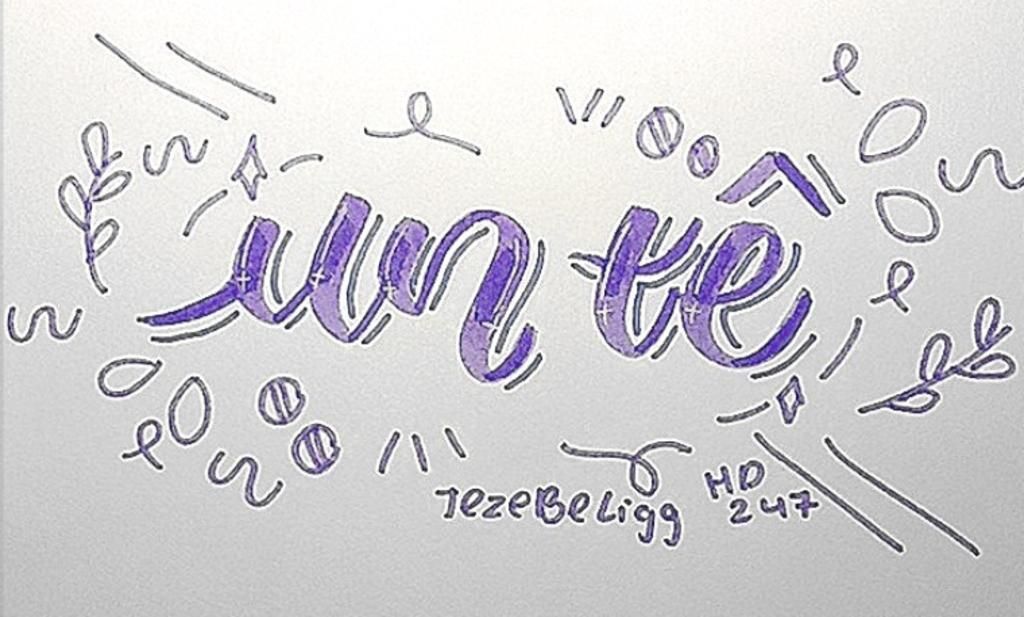 un tê
JezeBeligg HD
247